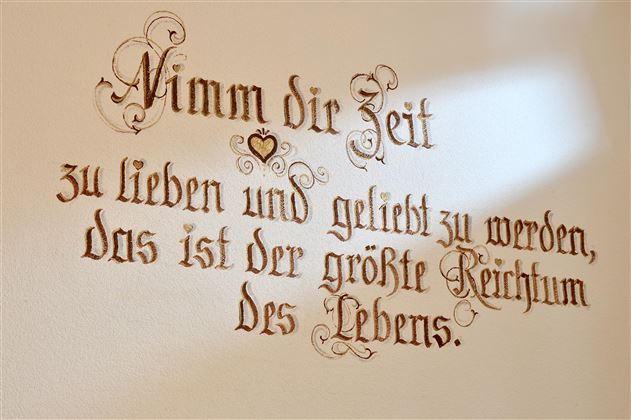 Nimm dir Zeit
zu lieben und geliebt zu werden,
das ist der größte Reichtum
des Lebens.